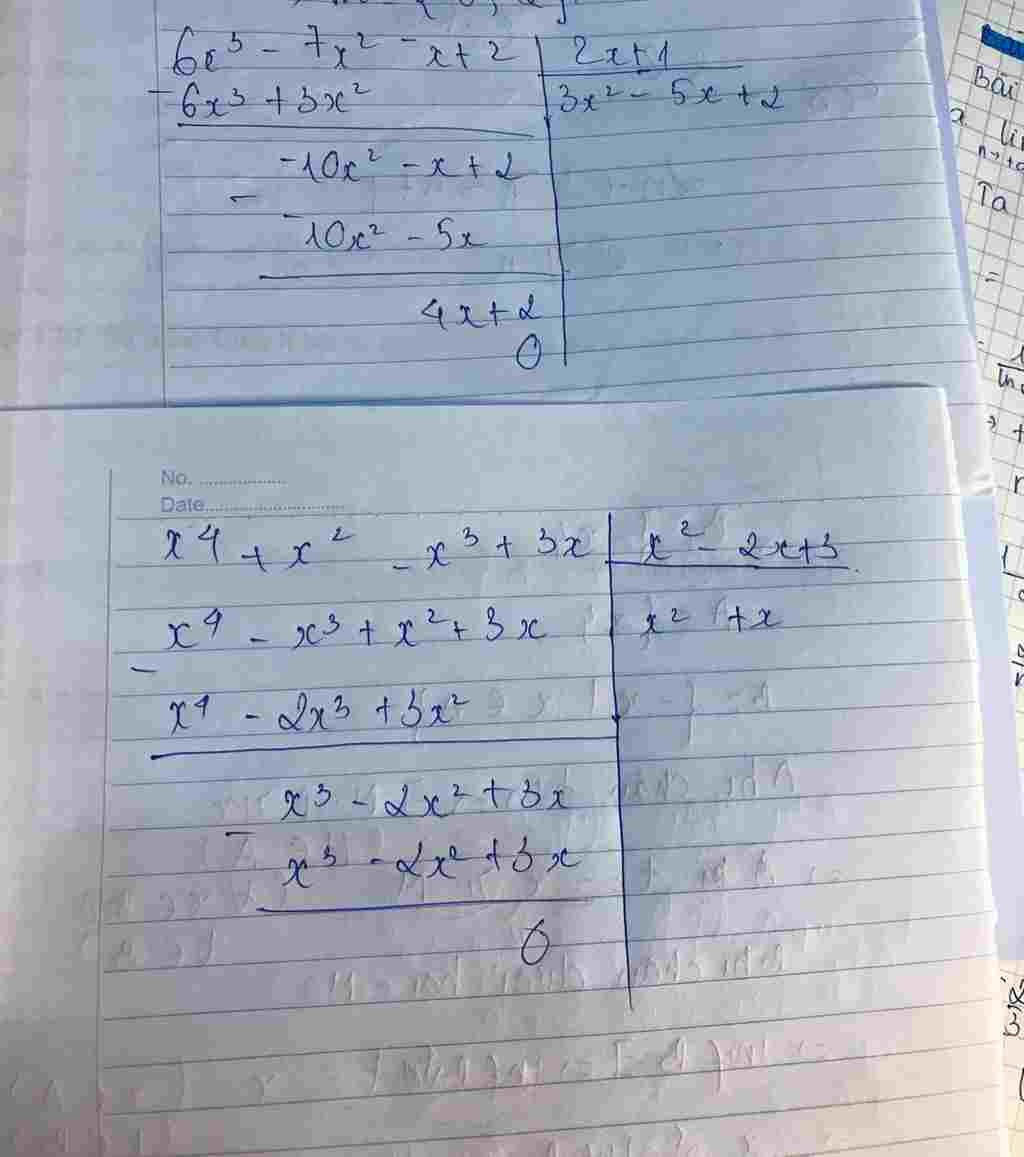 6x³ - 7x² - x + 2 | 2x + 1
- 6x³ + 3x² | 3x² - 5x + 2
-10x² - x + 2
-
-10x² - 5x
4x + 2
0
No. ..................
Date............................
x⁴ + x² - x³ + 3x | x² - 2x + 3
x⁴ - x³ + x² + 3x | x² + x
-
x⁴ - 2x³ + 3x²
x³ - 2x² + 3x
-
x³ - 2x² + 3x
0
Bài
a
Ta
=